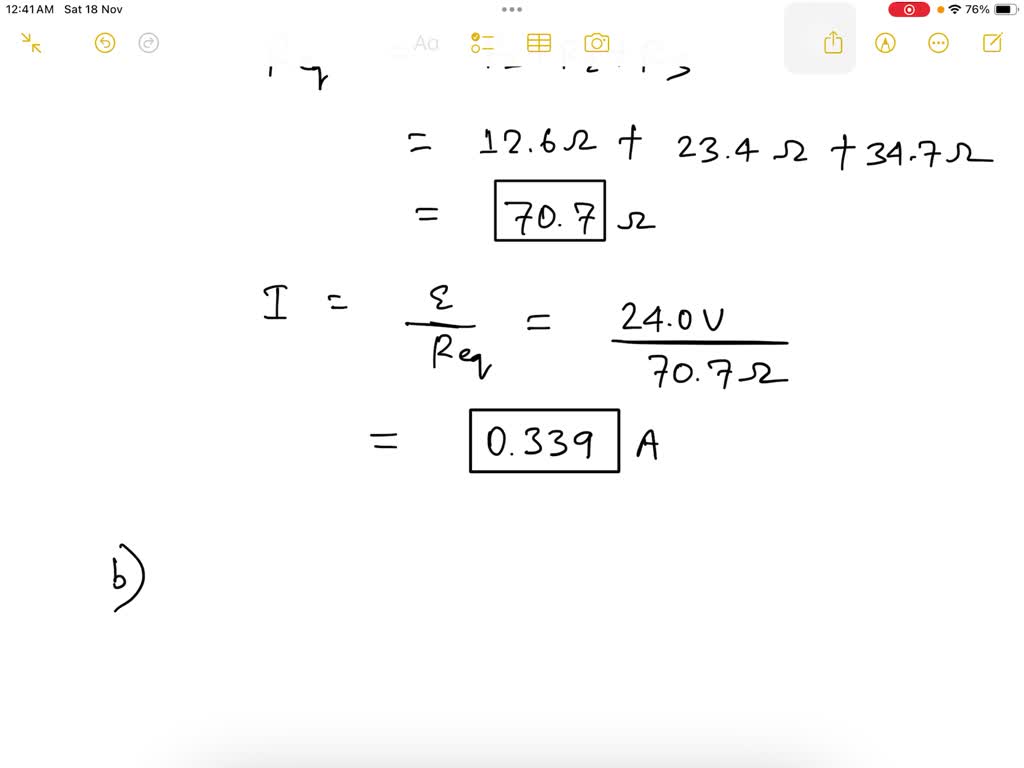 12:41 AM Sat 18 Nov
76%
Aa
= 12.6Ω + 23.4Ω + 34.7Ω
= 70.7 Ω
I = ε / Req = 24.0V / 70.7Ω
= 0.339 A
b)